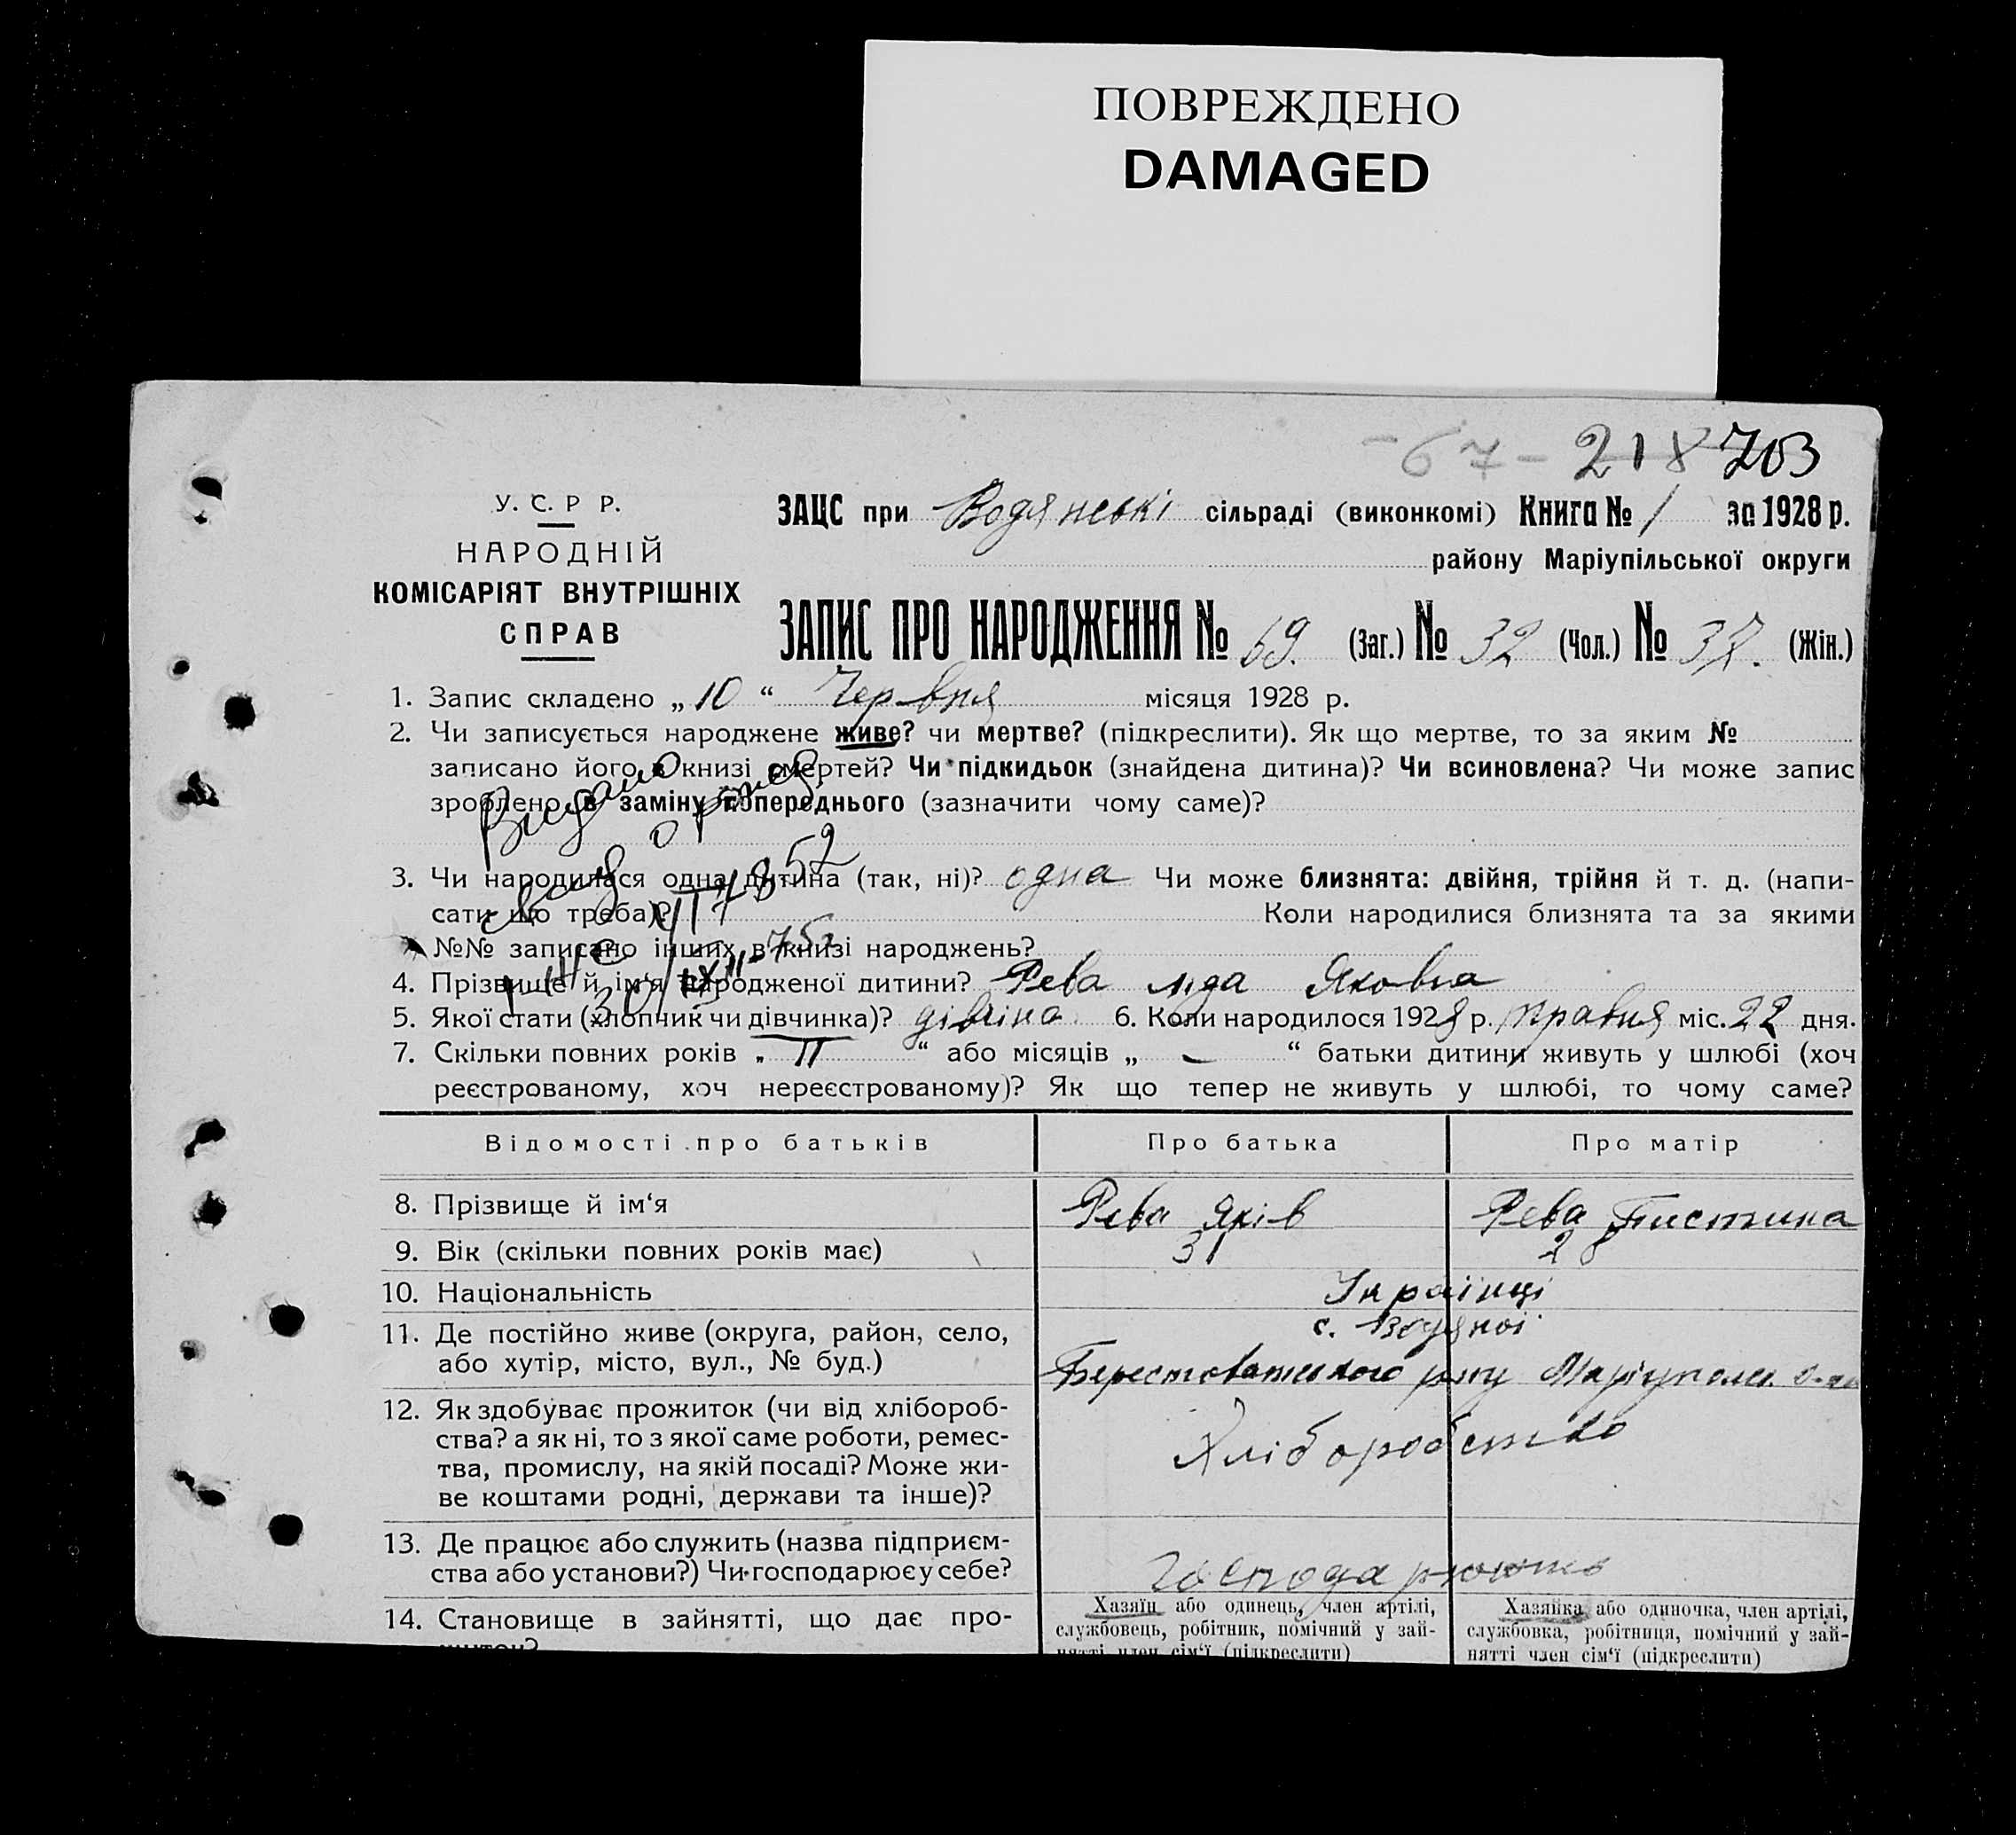 ПОВРЕЖДЕНО
DAMAGED
67 - 218 703
У. С. Р Р.
НАРОДНІЙ
КОМІСАРІЯТ ВНУТРІШНІХ
СПРАВ
ЗАЦС при Водянські сільраді (виконкомі) Книга № 1 за 1928 р.
району Маріупільської округи
ЗАПИС ПРО НАРОДЖЕННЯ № 69. (Заг.) № 32 (Чол.) № 37. (Жін.)
1. Запис складено „ 10 “ Червня місяця 1928 р.
2. Чи записується народжене живе? чи мертве? (підкреслити). Як що мертве, то за яким №
записано його в книзі смертей? Чи підкидьок (знайдена дитина)? Чи всиновлена? Чи може запис
зроблено в заміну попереднього (зазначити чому саме)?
3. Чи народилася одна дитина (так, ні)? одна Чи може близнята: двійня, трійня й т. д. (напи-
сати що треба)? Коли народилися близнята та за якими
№№ записано інших в книзі народжень?
4. Прізвище й ім‘я народженої дитини? Рева Ліда Яковна
5. Якої стати (хлопчик чи дівчинка)? дівчина 6. Коли народилося 1928 р. травня міс. 22 дня.
7. Скільки повних років „ 11 “ або місяців „ – “ батьки дитини живуть у шлюбі (хоч
реєстрованому, хоч нереєстрованому)? Як що тепер не живуть у шлюбі, то чому саме?
Відомості про батьків Про батька Про матір
8. Прізвище й ім‘я Рева Яків Рева
9. Вік (скільки повних років має) 31 28
10. Національність Українці
11. Де постійно живе (округа, район, село, с. Водяної
або хутір, місто, вул., № буд.) Берестоватського р-ну Маріуполь.
12. Як здобуває прожиток (чи від хлібороб- Хліборобство
ства? а як ні, то з якої саме роботи, ремес-
тва, промислу, на якій посаді? Може жи-
ве коштами родні, держави та інше)?
13. Де працює або служить (назва підприєм-
ства або установи?) Чи господарює у себе? Господарюють
14. Становище в зайнятті, що дає про-
житок?
Хазяїн або одинець, член артілі,
службовець, робітник, помічний у зай-
нятті член сім‘ї (підкреслити)
Хазяйка або одиночка, член артілі,
службовка, робітниця, помічний у зай-
нятті член сім‘ї (підкреслити)